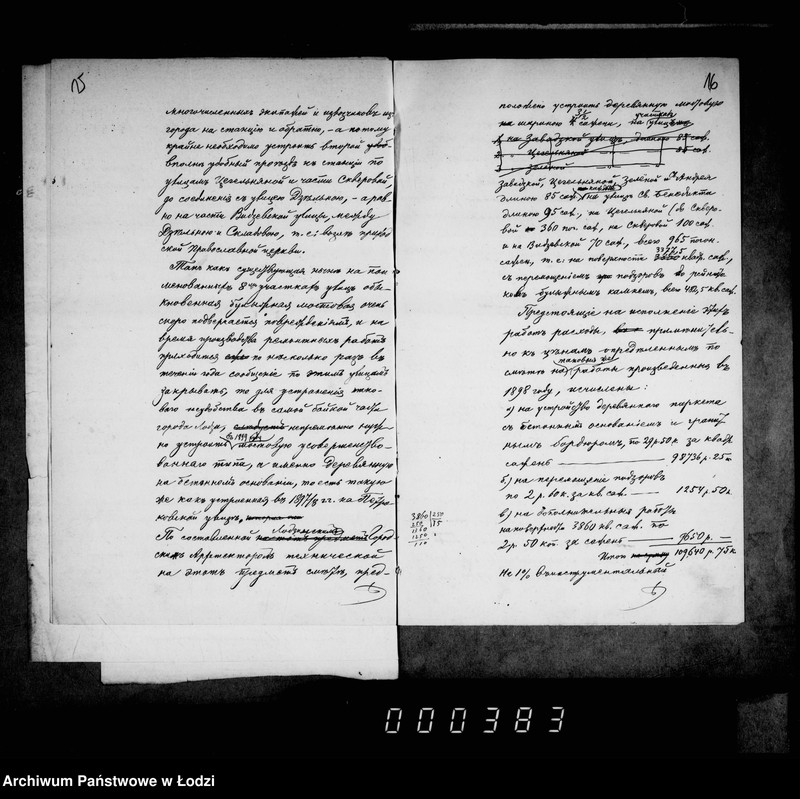 15
многочисленныхъ экипажей и извозчиковъ изъ
города на станцію и обратно, - а потому
крайне необходимо устроить второй
вполнѣ удобный проѣздъ къ станціи по
улицамъ Цегельняной и части Скверовой,
до соединенія съ улицею Дзѣльною, - а рав-
но на части Видзевской улицы, между
Дзѣльною и Складовою, т. е. возлѣ
ской Православной церкви.
Такъ какъ существующая нынѣ на пои-
менованныхъ 8 участкахъ улицъ обы-
кновенная булыжная мостовая очень
скоро подвергается поврежденіямъ и на
время производства ремонтныхъ работъ
приходится по нѣсколько разъ въ
теченіи года сообщеніе по этимъ улицамъ
закрывать, то для устраненія тако-
вого неудобства въ самой бойкой части
города Лодзи, непремѣнно нуж-
но устроить въ 1899 году мостовую усовершенство-
ваннаго типа, а именно деревянную
на бетонномъ основаніи, то есть такую
же какъ устроенная въ 1897/8 гг. на Петро-
ковской улицѣ,
По составленной Лодзинскимъ Город-
скимъ Архитекторомъ технической
на этотъ предметъ смѣтѣ, пред-
16
положено устроить деревянную мостовую
на шириною 3½ сажени, на участкахъ
на Завадзкой улицѣ, длиною 85 саж.
Цегельняной 85 саж.
Зеленой
Завадзкой, Цегельняной, Зеленой Андрея
длиною 85 саж., на улицѣ Св. Бенедикта
длиною 95 саж., на Цегельняной (до Скверо-
вой 360 пог. саж., на Скверовой 100 саж.
и на Видзевской 70 саж., всего 965 погон.
сажен, т. е. на поверхности 3377,5 квад. саж.,
съ перемощеніемъ подзоровъ
булыжнымъ камнемъ, всего 482,5 кв. саж.
Предстоящіе на исполненіе этихъ
работъ расходы, примѣнительно
но къ цѣнамъ опредѣленнымъ по
смѣтѣ на таковыя же работы произведенныя въ
1898 году, исчислены:
а) на устройство деревяннаго паркета
съ бетоннымъ основаніемъ и гранит-
нымъ бордюромъ, по 29 р. 50 к. за квадр.
сажень — 98736 р. 25 к.
б) на перемощеніе подзоровъ
по 2 р. 60 к. за кв. саж. — 1254 р. 50 к.
в) на дополнительныя работы
на поверхности 3860 кв. саж. по
2 р. 50 коп. за сажень — 9650 р. —
Итого 109640 р. 75 к.
На 1% инструментальный
3860
250
000383
Archiwum Państwowe w Łodzi